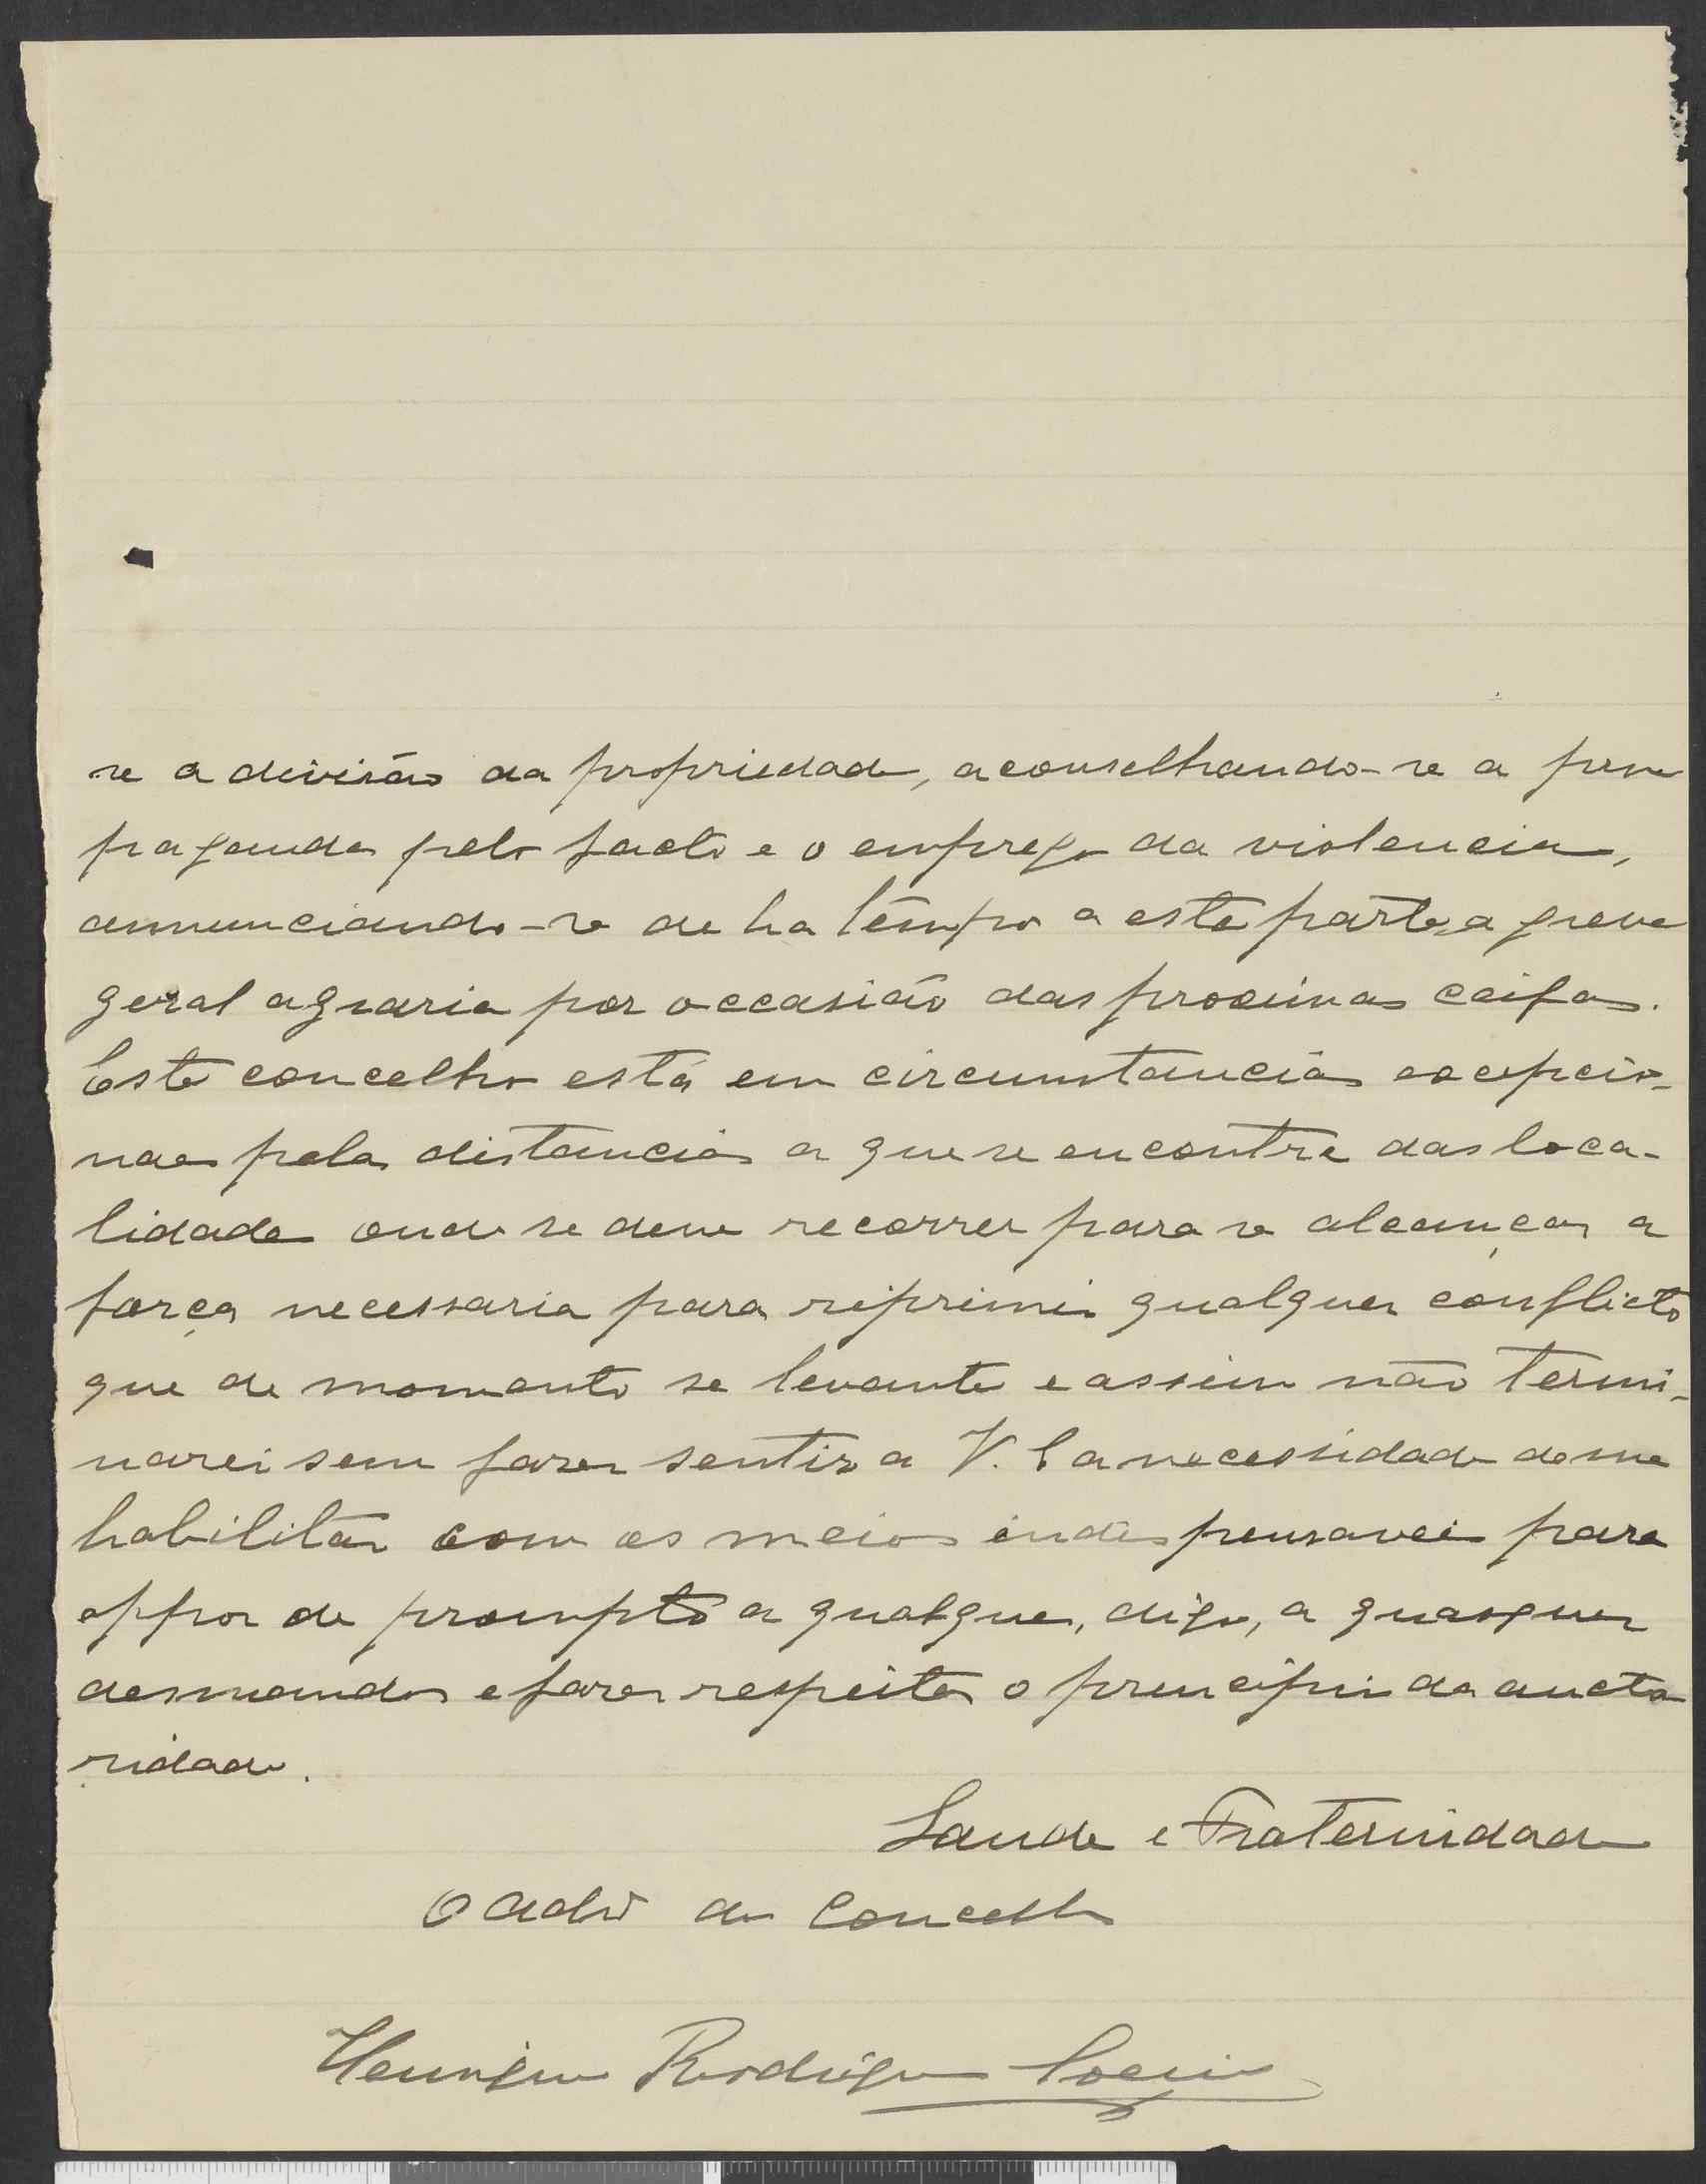 se a divisão da propriedade, aconselhando-se a pro
paganda pelo facto e o emprego da violencia,
annunciando-se de ha tempo a esta parte, a greve
geral agraria por occasião das proximas ceifas.
Este concelho está em circumstancias excepcio-
naes pela distancia a que se encontra das loca-
lidades onde se deve recorrer para se alcançar a
força necessaria para reprimir qualquer conflicto
que de momento se levante e assim não termi-
narei sem fazer sentir a V. Ex a necessidade de me
habilitar com os meios indispensaveis para
oppor de prompto a qualquer, digo, a quaesquer
desmandos e fazer respeitar o principio da aucto
ridade.
Saude e Fraternidade
O Admor do Concelho
Henrique Rodrigues